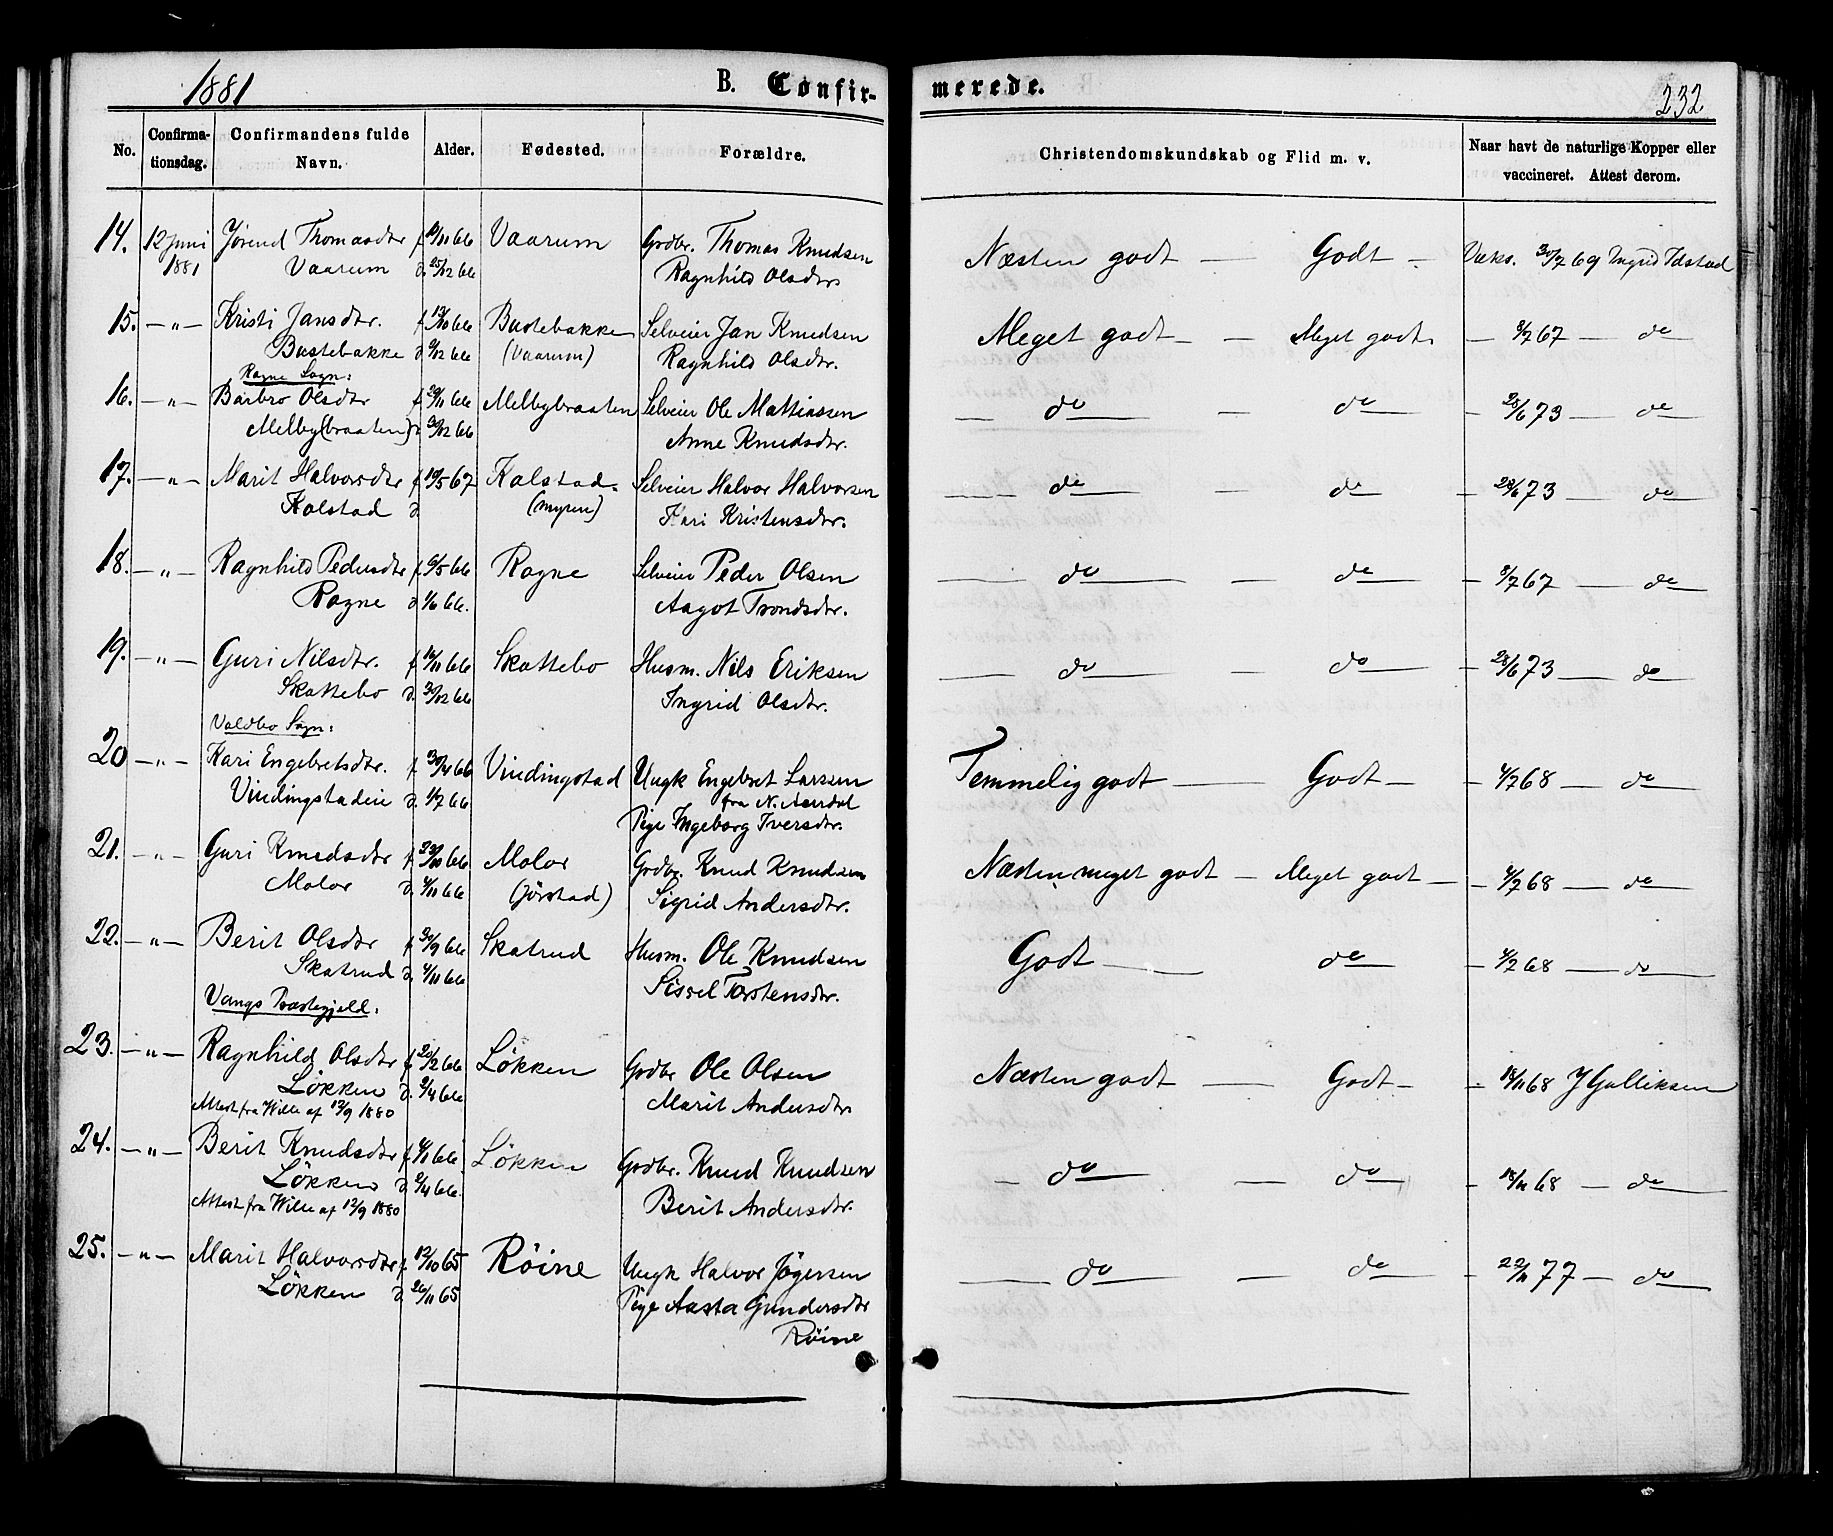 1881
B. Confir-
merede.
232
No.
Confirma-
tionsdag.
Confirmandens fulde
Navn.
Alder.
Fødested.
Forældre.
Christendomskundskab og Flid m. v.
Naar havt de naturlige Kopper eller
vaccineret. Attest derom.
14. 12 Juni Jørend Thomasdtr f 19/11 66 Vaarum Grdbr. Thomas Knudsen Næsten godt — Godt — Vaks. 30/7 69 Ingrid Idstad
1881 Vaarum d. 25/12 66 Ragnhild Olsdtr
15. —"— Kristi Jansdtr. f 13/10 66 Bustebakke Selveier Jan Knudsen Meget godt — — Meget godt. — 8/7 67 — do
Bustebakke d 9/12 66 (Vaarum) Ragnhild Olsdtr.
Rogne Sogn:
16. —"— Barbro Olsdtr f 29/11 66 Melbybraaten Selveier Ole Mathiassen — do — do — 28/6 73 — do
Melby(braaten) d 30/12 66 Anne Knudsdtr.
17. —"— Marit Halvorsdtr f 10/5 67 Kolstad- Selveier Halvor Halvorsen — do — do — 28/6 73 — do
Kolstad d (myren) Kari Kristensdtr.
18. —"— Ragnhild Pedersdtr f 6/5 66 Rogne Selveier Peder Olsen — do — do — 8/7 67 — do
Rogne d 1/6 66. Aagot Trondsdtr.
19. —"— Guri Nilsdtr. f 16/11 66 Skattebo Husm. Nils Eriksen — do — do — 28/6 73 — do
Skattebo d. 30/12 66 Ingrid Olsdtr.
Voldbo Sogn:
20 —"— Kari Engebretsdtr. f 30/4 66 Vindingstad Ungk Engebret Larssen Temmelig godt — Godt — 4/7 68 — do
Vindingstadeie d. 1/7 66 fra N. Aurdal
Pige Ingeborg Iversdtr.
21. —"— Guri Knudsdtr f 23/10 66 Molor Grdbr. Knud Knudsen Næsten meget godt — Meget godt — 4/7 68 — do
Molor d. 4/11 66 (Jørstad) Sigrid Andersdtr.
22. —"— Berit Olsdtr f 30/9 66 Skatrud Husm. Ole Knudsen Godt — do — 4/7 68 — do
Skatrud d 4/11 66 Sissel Torstensdtr.
Vangs Præstegjeld:
23. —"— Ragnhild Olsdtr f 20/2 66 Løkken Grdbr Ole Olsen Næsten godt — Godt — 18/11 68 J Gulliksen
Løkken d. 2/4 66 Marit Andersdtr
Attest fra Wille af 12/9 1880
24. —"— Berit Knudsdtr f 4/1 66 Løkken Grdbr. Knud Knudsen — do — do — 18/11 68 — do
Løkken d 2/4 66. Berit Andersdtr.
Attest fra Wille af 12/9 1880
25. —"— Marit Halvorsdtr f 12/10 65 Røine Ungk Halvor Jøgersen — do — do — 22/11 77 — do
Løkken d. 26/11 65 Pige Aasta Gundersdtr
Røine